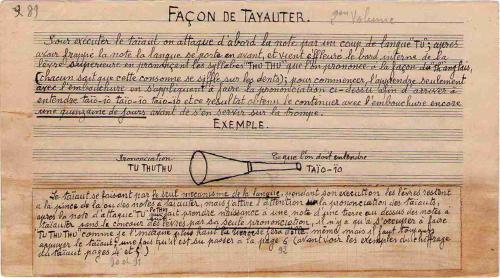 89
FAÇON DE TAYAUTER.
2ème Volume
Pour exécuter le taïaut on attaque d'abord la note par un coup de langue "TU; après
avoir frappé la note la langue se porte en avant, et vient effleurer le bord interne de la
lèvre supérieure en prononçant les syllabes "THU THU" que l'on prononce à la façon du TH anglais,
(chacun sait que cette consonne se siffle sur les dents); pour commencer l'apprendre seulement
avec l'embouchure en s'appliquant à faire la prononciation ci-dessus afin d'arriver à
entendre taïo-io taïo-io taïo-io et ce résultat obtenu le continuer avec l'embouchure encore
une quinzaine de jours avant de s'en servir sur la trompe.
EXEMPLE.
Prononciation
TU THUTHU
Ce que l'on doit entendre
TAÏO-IO
Le taïaut se faisant par le seul mécanisme de la langue, pendant son exécution les lèvres restent
à la pince de la ou des notes à tayauter, mais j'attire l'attention sur la prononciation des taïauts,
après la note d'attaque TU faut prendre naissance à une note d'une tierce au dessus des notes à
tayauter sans le concours des lèvres par sa seule prononciation, il n'y a qu'à s'exercer à faire
TU THU THU" comme je l'indique plus haut la tierce se fera d'elle même, mais il faut toujours
appuyer le taïaut une fois qu'il est su passer à la page 6 (avant voir les exemples du chiffrage
du taïaut pages 4 et 5.)
92
90 et 91